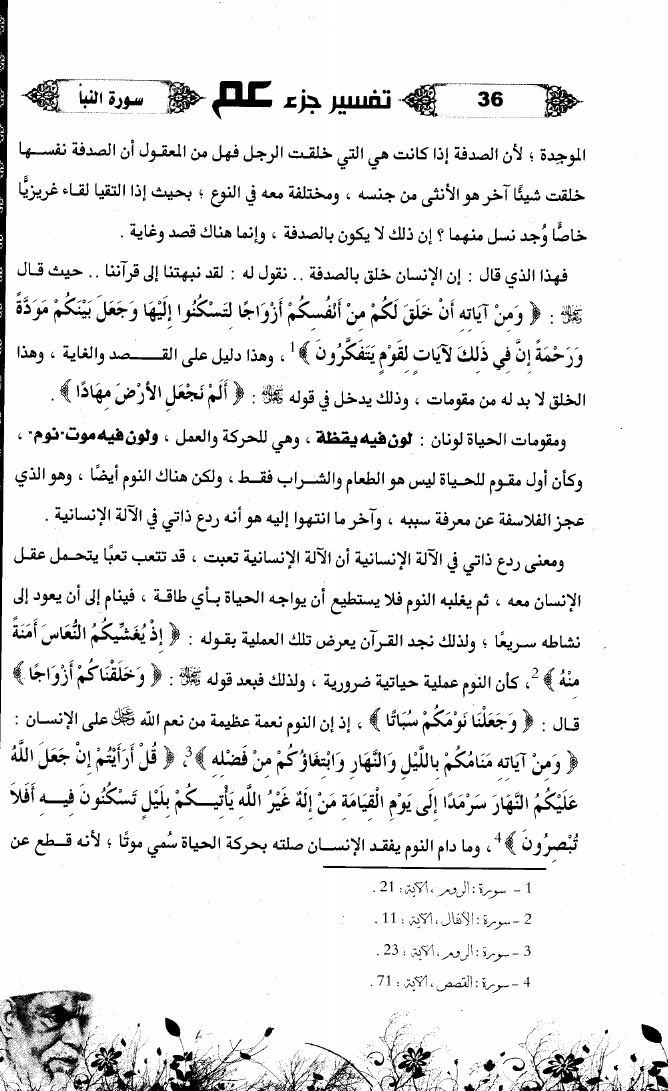 36
تفسير جزء عم
سورة النبأ
الموجدة ؛ لأن الصدفة إذا كانت هي التي خلقت الرجل فهل من المعقول أن الصدفة نفسها
خلقت شيئًا آخر هو الأنثى من جنسه ، ومختلفة معه في النوع ؛ بحيث إذا التقيا لقاء غريزيًّا
خاصًّا وُجد نسل منهما ؟ إن ذلك لا يكون بالصدفة ، وإنما هناك قصد وغاية .
فهذا الذي قال : إن الإنسان خلق بالصدفة .. نقول له : لقد نبهتنا إلى قرآننا .. حيث قال
ﷻ : ﴿ وَمِنْ آيَاتِهِ أَنْ خَلَقَ لَكُمْ مِنْ أَنْفُسِكُمْ أَزْوَاجًا لِتَسْكُنُوا إِلَيْهَا وَجَعَلَ بَيْنَكُمْ مَوَدَّةً
وَرَحْمَةً إِنَّ فِي ذَلِكَ لَآيَاتٍ لِقَوْمٍ يَتَفَكَّرُونَ ﴾1 ، وهذا دليل على القـصد والغاية ، وهذا
الخلق لا بد له من مقومات ، وذلك يدخل في قوله ﷻ : ﴿ أَلَمْ نَجْعَلِ الأَرْضَ مِهَادًا ﴾ .
ومقومات الحياة لونان : لون فيه يقظة ، وهي للحركة والعمل ، ولون فيه موت - نوم - ،
وكأن أول مقوم للحياة ليس هو الطعام والشراب فقط ، ولكن هناك النوم أيضًا ، وهو الذي
عجز الفلاسفة عن معرفة سببه ، وآخر ما انتهوا إليه هو أنه ردع ذاتي في الآلة الإنسانية .
ومعنى ردع ذاتي في الآلة الإنسانية أن الآلة الإنسانية تعبت ، قد تتعب تعبًا يتحمل عقل
الإنسان معه ، ثم يغلبه النوم فلا يستطيع أن يواجه الحياة بأي طاقة ، فينام إلى أن يعود إلى
نشاطه سريعًا ؛ ولذلك نجد القرآن يعرض تلك العملية بقوله : ﴿ إِذْ يُغَشِّيكُمُ النُّعَاسَ أَمَنَةً
مِنْهُ ﴾2، كأن النوم عملية حياتية ضرورية ، ولذلك فبعد قوله ﷻ : ﴿ وَخَلَقْنَاكُمْ أَزْوَاجًا ﴾
قال : ﴿ وَجَعَلْنَا نَوْمَكُمْ سُبَاتًا ﴾ ، إذ إن النوم نعمة عظيمة من نعم الله ﷻ على الإنسان :
﴿ وَمِنْ آيَاتِهِ مَنَامُكُمْ بِاللَّيْلِ وَالنَّهَارِ وَابْتِغَاؤُكُمْ مِنْ فَضْلِهِ ﴾3، ﴿ قُلْ أَرَأَيْتُمْ إِنْ جَعَلَ اللَّهُ
عَلَيْكُمُ النَّهَارَ سَرْمَدًا إِلَى يَوْمِ الْقِيَامَةِ مَنْ إِلَهٌ غَيْرُ اللَّهِ يَأْتِيكُمْ بِلَيْلٍ تَسْكُنُونَ فِيهِ أَفَلَا
تُبْصِرُونَ ﴾4، وما دام النوم يفقد الإنسان صلته بحركة الحياة سُمي موتًا ؛ لأنه قطع عن
1 - سورة : الروم ، الآية : 21 .
2 - سورة : الأنفال ، الآية : 11 .
3 - سورة : الروم ، الآية : 23 .
4 - سورة : القصص ، الآية : 71 .